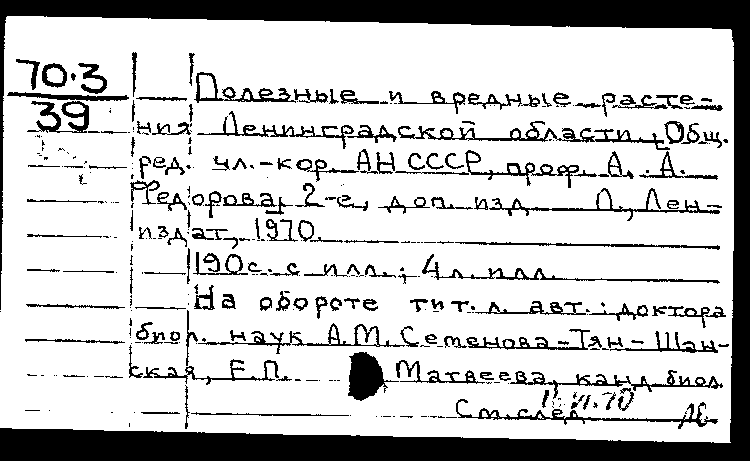 70.3
39
Полезные и вредные расте-
ния Ленинградской области. [Общ.
ред. чл.-кор. АН СССР, проф. А. А.
Федорова]. 2-е, доп. изд. Л., Лен-
издат, 1970.
190 с. с илл.; 4 л. илл.
На обороте тит. л. авт.: доктора
биол. наук А.М. Семенова-Тян-Шан-
ская, Е.П. Матвеева, канд. биол.
См. след.
VI.70